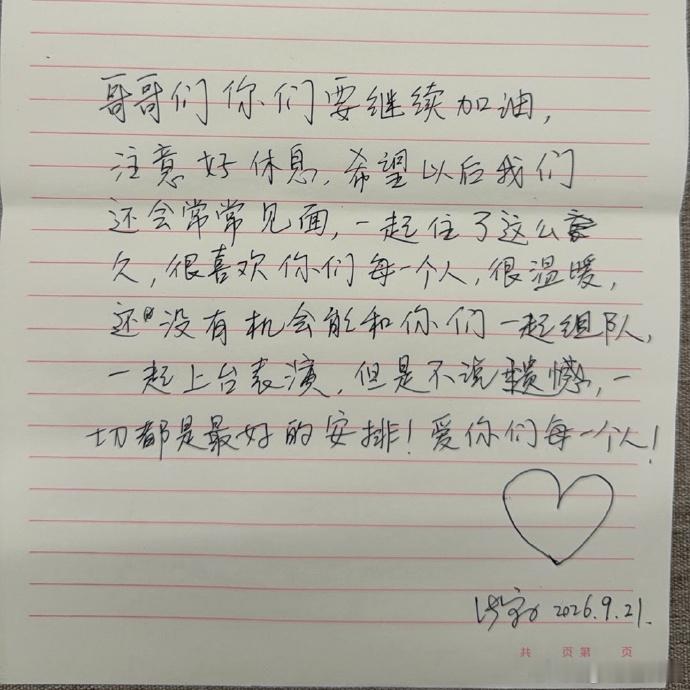 哥哥们你们要继续加油,
注意好休息,希望以后我们
还会常常见面,一起住了这么
久,很喜欢你们每一个人,很温暖,
还没有机会能和你们一起组队,
一起上台表演,但是不说遗憾,一
切都是最好的安排!爱你们每一个人!
2026.9.21.
共 页 第 页